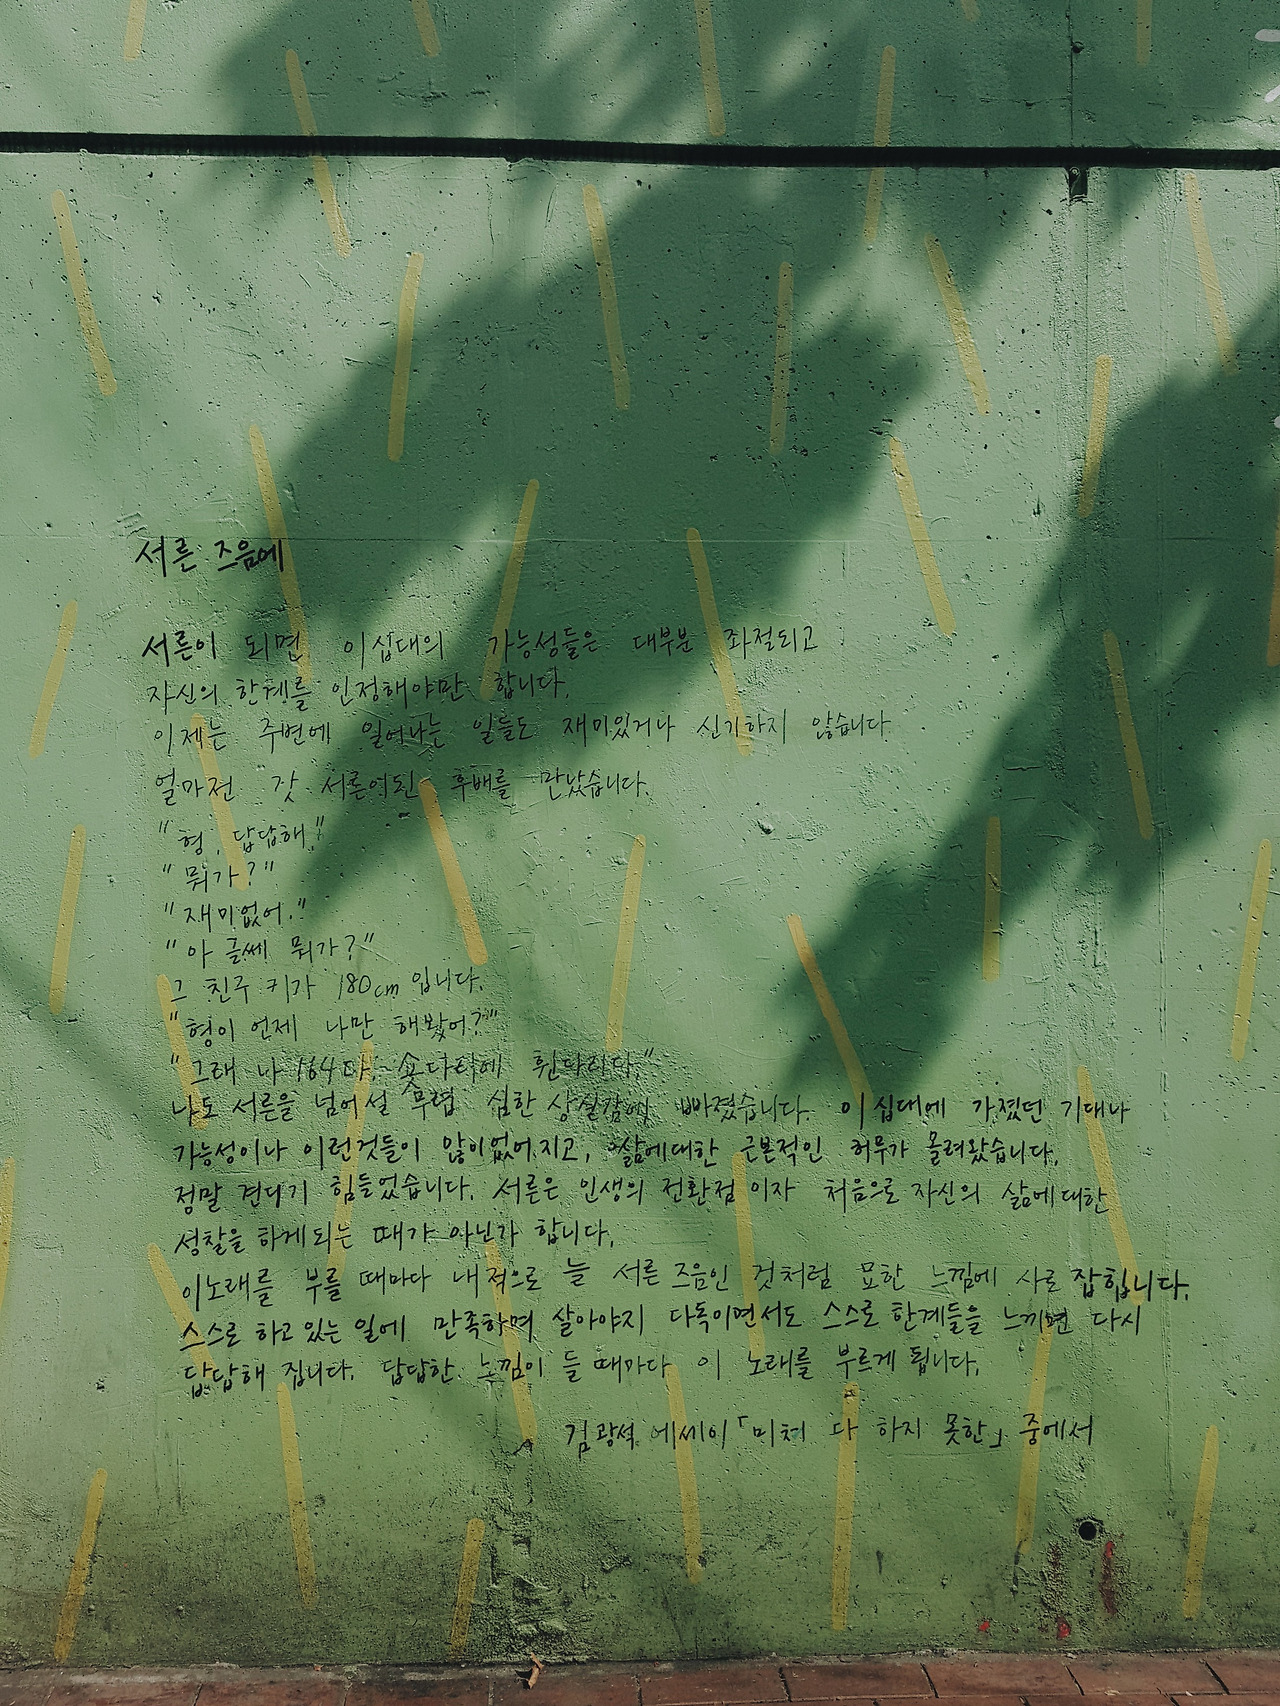 서른 즈음에
서른이 되면 이십대의 가능성들은 대부분 좌절되고
자신의 한계를 인정해야만 합니다.
이제는 주변에 일어나는 일들도 재미있거나 신기하지 않습니다
얼마전 갓 서른이된 후배를 만났습니다.
"형, 답답해"
"뭐가?"
"재미없어."
"아 글쎄 뭐가?"
그 친구 키가 180cm 입니다.
"형이 언제 나만 해봤어?"
"그래 나 164다. 숏다리에 휜다리다."
나도 서른을 넘어설 무렵 심한 상실감에 빠졌습니다. 이십대에 가졌던 기대나
가능성이나 이런것들이 많이없어지고, 삶에대한 근본적인 허무가 몰려왔습니다.
정말 견디기 힘들었습니다. 서른은 인생의 전환점 이자 처음으로 자신의 삶에대한
성찰을 하게되는 때가 아닌가 합니다.
이노래를 부를 때마다 내적으로 늘 서른 즈음인 것처럼 묘한 느낌에 사로잡힙니다.
스스로 하고있는 일에 만족하며 살아야지 다독이면서도 스스로 한계들을 느끼면 다시
답답해 집니다. 답답한 느낌이 들 때마다 이 노래를 부르게 됩니다.
김광석 에세이「미처 다 하지 못한」중에서